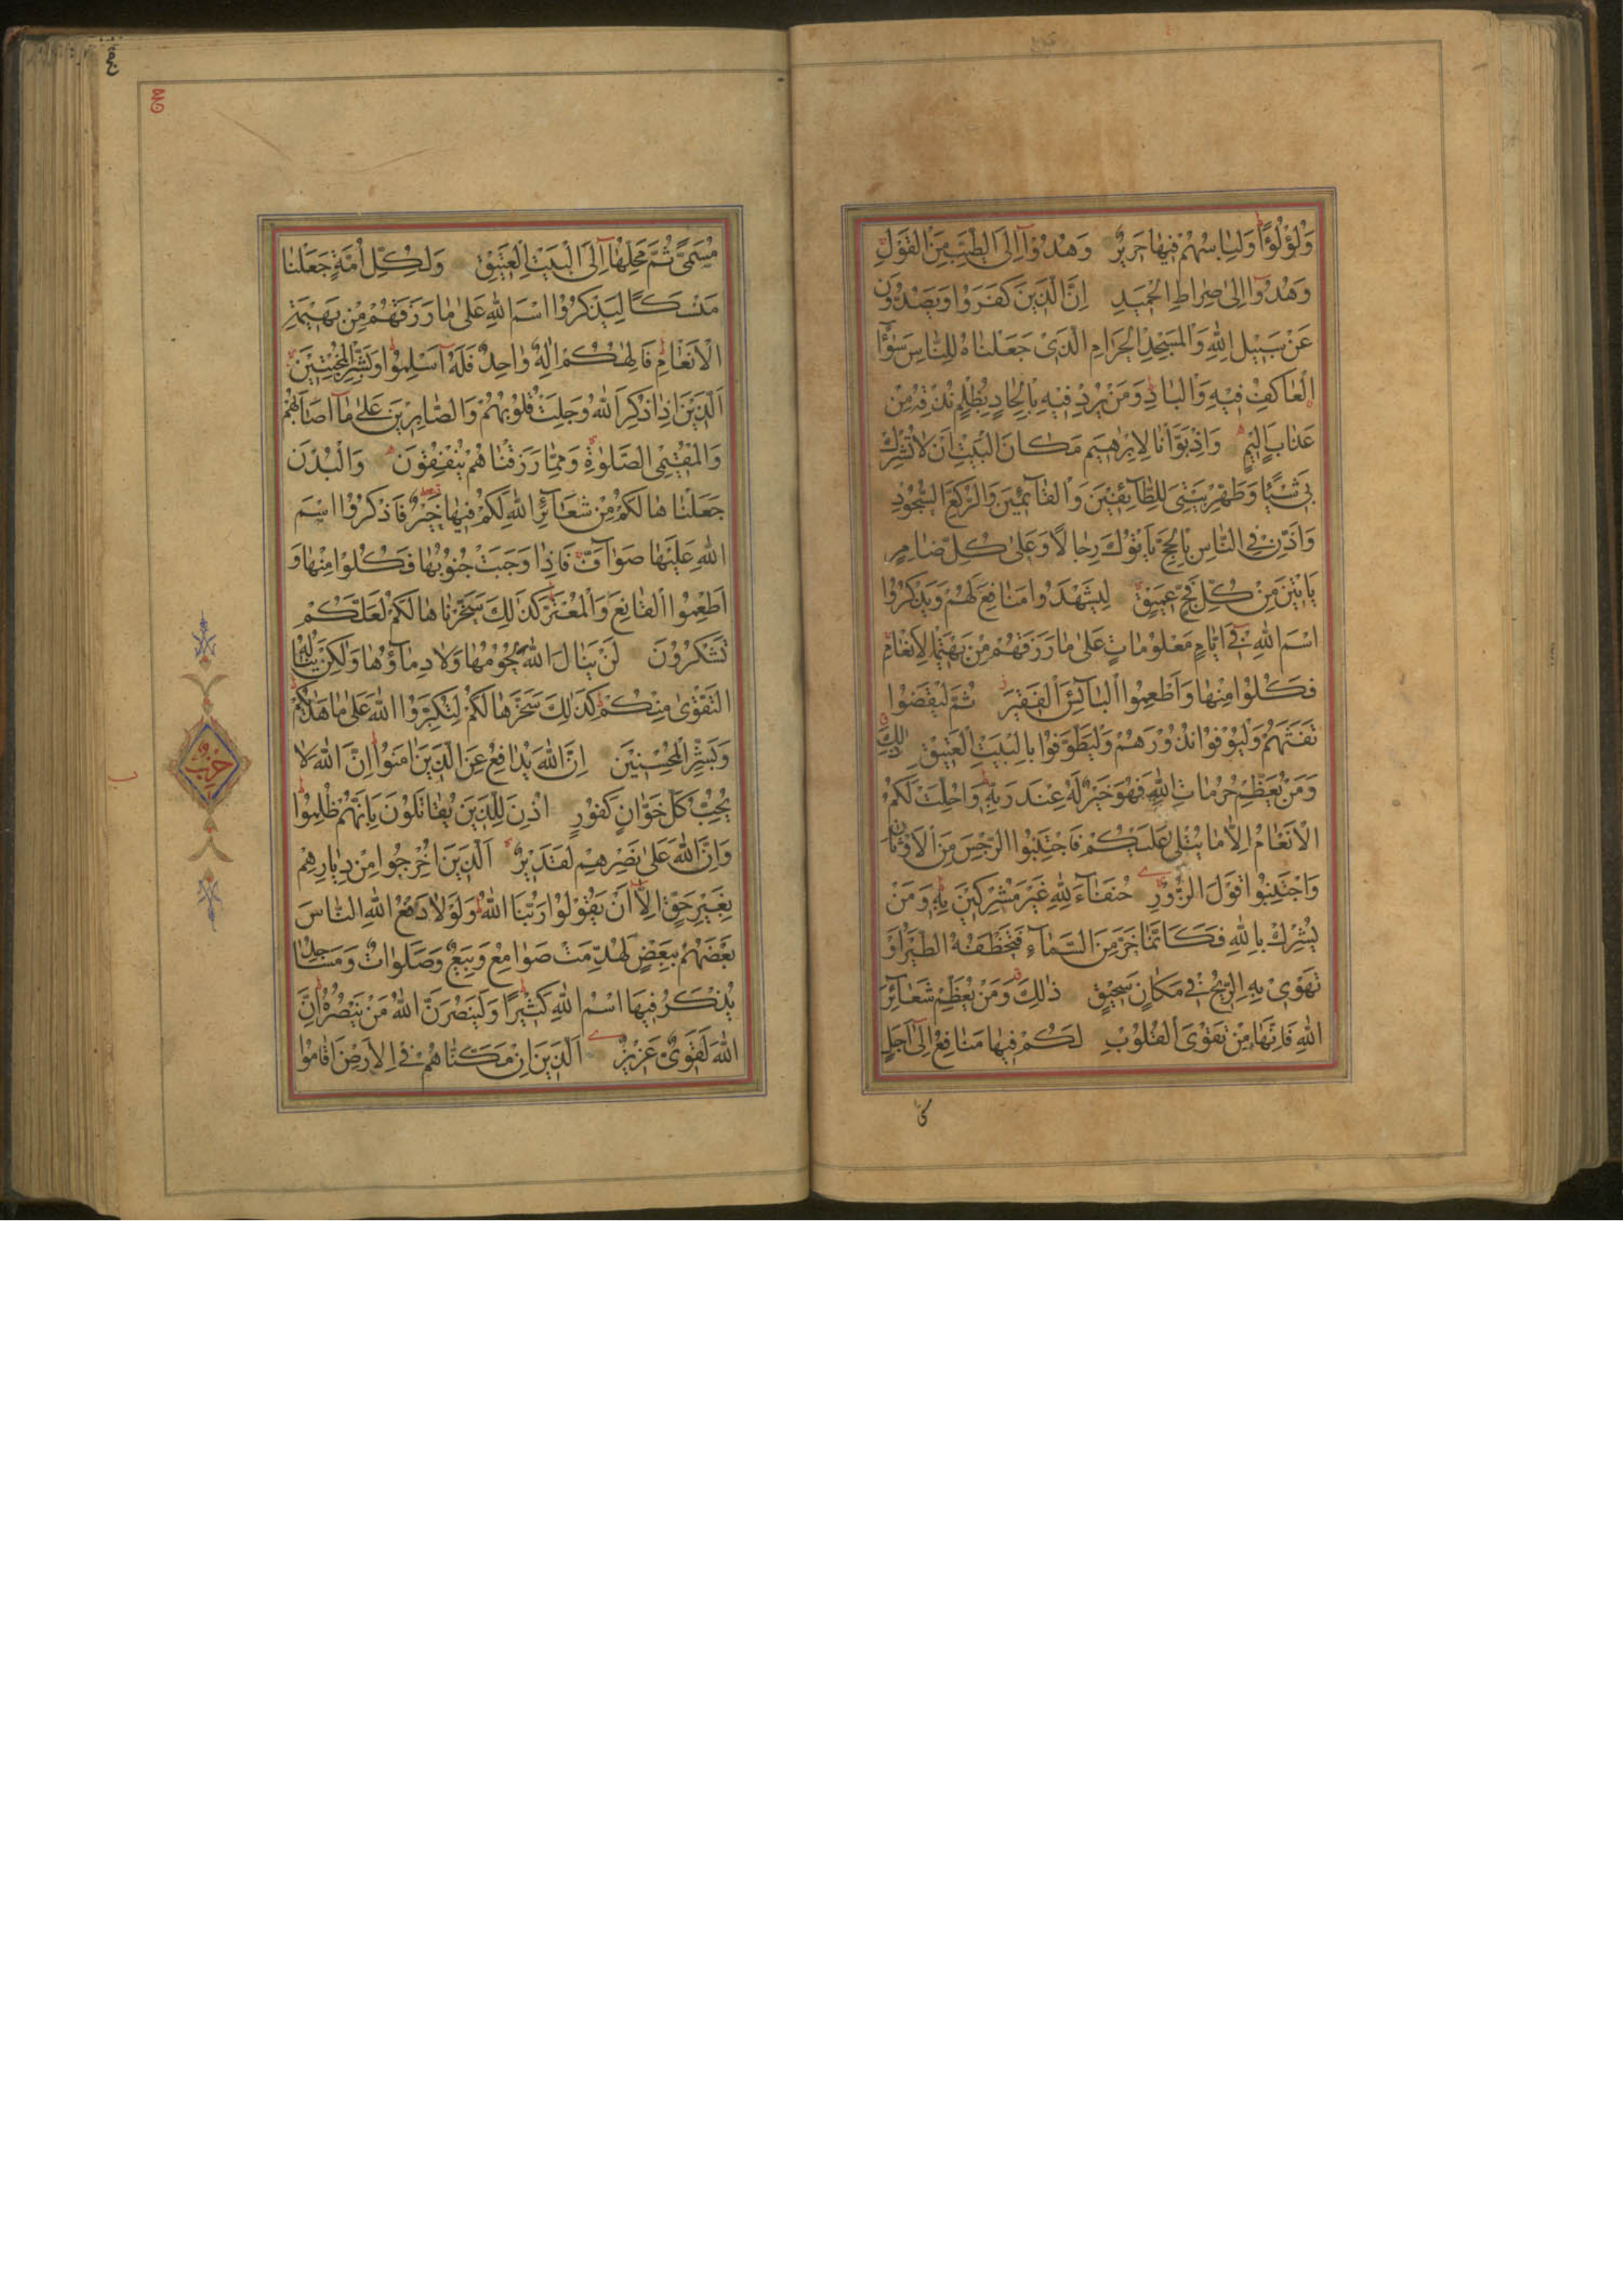 وَلُؤْلُؤًا وَلِبَاسُهُمْ فِيهَا حَرِيرٌ وَهُدُوٓا اِلَى الطَّيِّبِ مِنَ الْقَوْلِ
وَهُدُوٓا اِلٰى صِرَاطِ الْحَمِيدِ اِنَّ الَّذِينَ كَفَرُوا وَيَصُدُّونَ
عَنْ سَبِيلِ اللّٰهِ وَالْمَسْجِدِ الْحَرَامِ الَّذِى جَعَلْنَاهُ لِلنَّاسِ سَوَآءً
الْعَاكِفُ فِيهِ وَالْبَادِ وَمَنْ يُرِدْ فِيهِ بِاِلْحَادٍ بِظُلْمٍ نُذِقْهُ مِنْ
عَذَابٍ اَلِيمٍ وَاِذْ بَوَّاْنَا لِاِبْرٰهِيمَ مَكَانَ الْبَيْتِ اَنْ لَا تُشْرِكْ
بِى شَيْئًا وَطَهِّرْ بَيْتِىَ لِلطَّآئِفِينَ وَالْقَآئِمِينَ وَالرُّكَّعِ السُّجُودِ
وَاَذِّنْ فِى النَّاسِ بِالْحَجِّ يَاْتُوكَ رِجَالًا وَعَلٰى كُلِّ ضَامِرٍ
يَاْتِينَ مِنْ كُلِّ فَجٍّ عَمِيقٍ لِيَشْهَدُوا مَنَافِعَ لَهُمْ وَيَذْكُرُوا
اسْمَ اللّٰهِ فِىٓ اَيَّامٍ مَعْلُومَاتٍ عَلٰى مَا رَزَقَهُمْ مِنْ بَهِيمَةِ الْاَنْعَامِ
فَكُلُوا مِنْهَا وَاَطْعِمُوا الْبَآئِسَ الْفَقِيرَ ثُمَّ لْيَقْضُوا
تَفَثَهُمْ وَلْيُوفُوا نُذُورَهُمْ وَلْيَطَّوَّفُوا بِالْبَيْتِ الْعَتِيقِ ذٰلِكَ
وَمَنْ يُعَظِّمْ حُرُمَاتِ اللّٰهِ فَهُوَ خَيْرٌ لَهُ عِنْدَ رَبِّهِ وَاُحِلَّتْ لَكُمُ
الْاَنْعَامُ اِلَّا مَا يُتْلٰى عَلَيْكُمْ فَاجْتَنِبُوا الرِّجْسَ مِنَ الْاَوْثَانِ
وَاجْتَنِبُوا قَوْلَ الزُّورِ حُنَفَآءَ لِلّٰهِ غَيْرَ مُشْرِكِينَ بِهِ وَمَنْ
يُشْرِكْ بِاللّٰهِ فَكَاَنَّمَا خَرَّ مِنَ السَّمَآءِ فَتَخْطَفُهُ الطَّيْرُ اَوْ
تَهْوِى بِهِ الرِّيحُ فِى مَكَانٍ سَحِيقٍ ذٰلِكَ وَمَنْ يُعَظِّمْ شَعَآئِرَ
اللّٰهِ فَاِنَّهَا مِنْ تَقْوَى الْقُلُوبِ لَكُمْ فِيهَا مَنَافِعُ اِلٰٓى اَجَلٍ
حج
مُسَمًّى ثُمَّ مَحِلُّهَآ اِلَى الْبَيْتِ الْعَتِيقِ وَلِكُلِّ اُمَّةٍ جَعَلْنَا
مَنْسَكًا لِيَذْكُرُوا اسْمَ اللّٰهِ عَلٰى مَا رَزَقَهُمْ مِنْ بَهِيمَةِ
الْاَنْعَامِ فَاِلٰهُكُمْ اِلٰهٌ وَاحِدٌ فَلَهُٓ اَسْلِمُوا وَبَشِّرِ الْمُخْبِتِينَ
اَلَّذِينَ اِذَا ذُكِرَ اللّٰهُ وَجِلَتْ قُلُوبُهُمْ وَالصَّابِرِينَ عَلٰى مَآ اَصَابَهُمْ
وَالْمُقِيمِى الصَّلٰوةِ وَمِمَّا رَزَقْنَاهُمْ يُنْفِقُونَ وَالْبُدْنَ
جَعَلْنَاهَا لَكُمْ مِنْ شَعَآئِرِ اللّٰهِ لَكُمْ فِيهَا خَيْرٌ فَاذْكُرُوا اسْمَ
اللّٰهِ عَلَيْهَا صَوَآفَّ فَاِذَا وَجَبَتْ جُنُوبُهَا فَكُلُوا مِنْهَا وَ
اَطْعِمُوا الْقَانِعَ وَالْمُعْتَرَّ كَذٰلِكَ سَخَّرْنَاهَا لَكُمْ لَعَلَّكُمْ
تَشْكُرُونَ لَنْ يَنَالَ اللّٰهَ لُحُومُهَا وَلَا دِمَآؤُهَا وَلٰكِنْ يَنَالُهُ
التَّقْوٰى مِنْكُمْ كَذٰلِكَ سَخَّرَهَا لَكُمْ لِتُكَبِّرُوا اللّٰهَ عَلٰى مَا هَدٰىكُمْ
وَبَشِّرِ الْمُحْسِنِينَ اِنَّ اللّٰهَ يُدَافِعُ عَنِ الَّذِينَ اٰمَنُوا اِنَّ اللّٰهَ لَا
يُحِبُّ كُلَّ خَوَّانٍ كَفُورٍ اُذِنَ لِلَّذِينَ يُقَاتَلُونَ بِاَنَّهُمْ ظُلِمُوا
وَاِنَّ اللّٰهَ عَلٰى نَصْرِهِمْ لَقَدِيرٌ اَلَّذِينَ اُخْرِجُوا مِنْ دِيَارِهِمْ
بِغَيْرِ حَقٍّ اِلَّآ اَنْ يَقُولُوا رَبُّنَا اللّٰهُ وَلَوْلَا دَفْعُ اللّٰهِ النَّاسَ
بَعْضَهُمْ بِبَعْضٍ لَهُدِّمَتْ صَوَامِعُ وَبِيَعٌ وَصَلَوَاتٌ وَمَسَاجِدُ
يُذْكَرُ فِيهَا اسْمُ اللّٰهِ كَثِيرًا وَلَيَنْصُرَنَّ اللّٰهُ مَنْ يَنْصُرُهُ اِنَّ
اللّٰهَ لَقَوِىٌّ عَزِيزٌ اَلَّذِينَ اِنْ مَكَّنَّاهُمْ فِى الْاَرْضِ اَقَامُوا
حزب